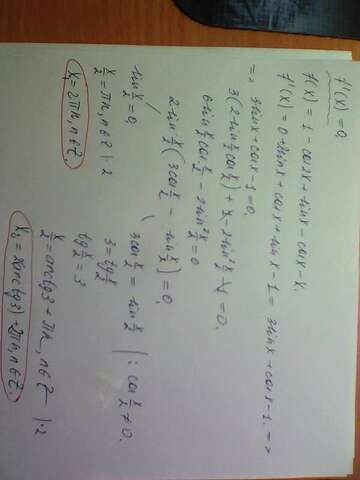 f'(x) = 0,
f(x) = 1 - cos2x + sinx - cosx - x.
f'(x) = 0 + 2sinx + cosx + sinx - 1 = 3sinx + cosx - 1. =>
=> 3sinx + cosx - 1 = 0.
3(2sin x/2 cos x/2) + 1 - 2sin² x/2 - 1 = 0.
6sin x/2 cos x/2 - 2sin² x/2 = 0
2sin x/2 (3cos x/2 - sin x/2) = 0,
sin x/2 = 0,
x/2 = πn, n∈Z |·2
x₁ = 2πn, n∈Z.
3cos x/2 = sin x/2 | : cos x/2 ≠ 0.
3 = tg x/2
tg x/2 = 3
x/2 = arctg3 + πn, n∈Z |·2
x₂ = 2(arctg3) + 2πn, n∈Z.